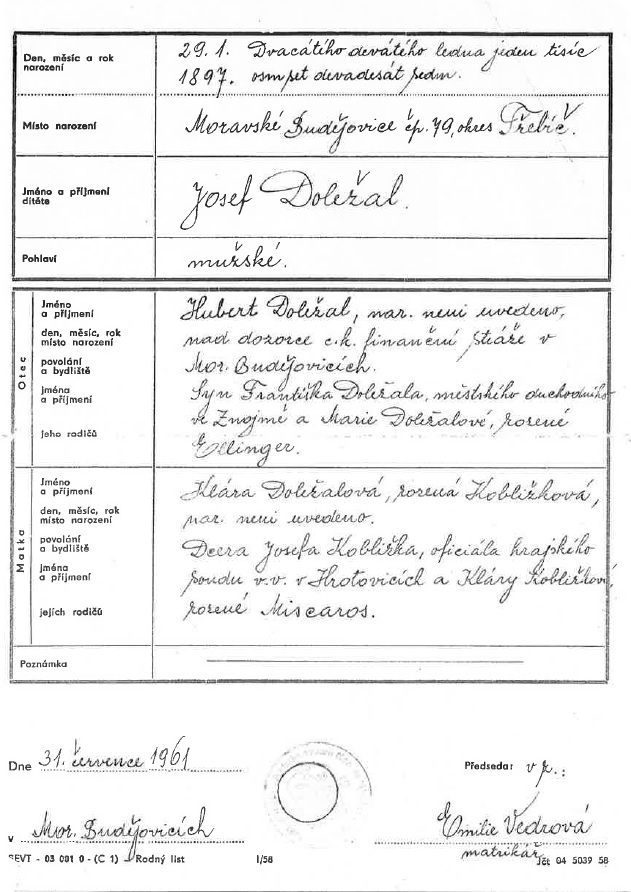 Den, měsíc a rok
narození
29.1. Dvacátého devátého ledna jeden tisíc
1897. osmset devadesát sedm.
Místo narození
Moravské Budějovice čp. 79, okres Třebíč.
Jméno a příjmení
dítěte
Josef Doležal.
Pohlaví
mužské.
Otec
Jméno
a příjmení
den, měsíc, rok
místo narození
povolání
a bydliště
jména
a příjmení
jeho rodičů
Hubert Doležal, nar. není uvedeno,
nad dozorce c.k. finanční stráže v
Mor. Budějovicích.
Syn Františka Doležala, městského duchodního
ve Znojmě a Marie Doležalové, rozené
Ellinger.
Matka
Jméno
a příjmení
den, měsíc, rok
místo narození
povolání
a bydliště
jména
a příjmení
jejích rodičů
Klára Doležalová, rozená Kobližková,
nar. není uvedeno.
Dcera Josefa Kobližka, oficiála krajského
soudu v.v. v Hrotovicích a Kláry Kobližkové,
rozené Miscaros.
Poznámka
Dne 31. července 1961
Předseda: v z.:
v Mor. Budějovicích
Emilie Vedrová
matrikář
SEVT - 03 001 0 - (C 1) - Rodný list I/58
Jčt 04 5039 58